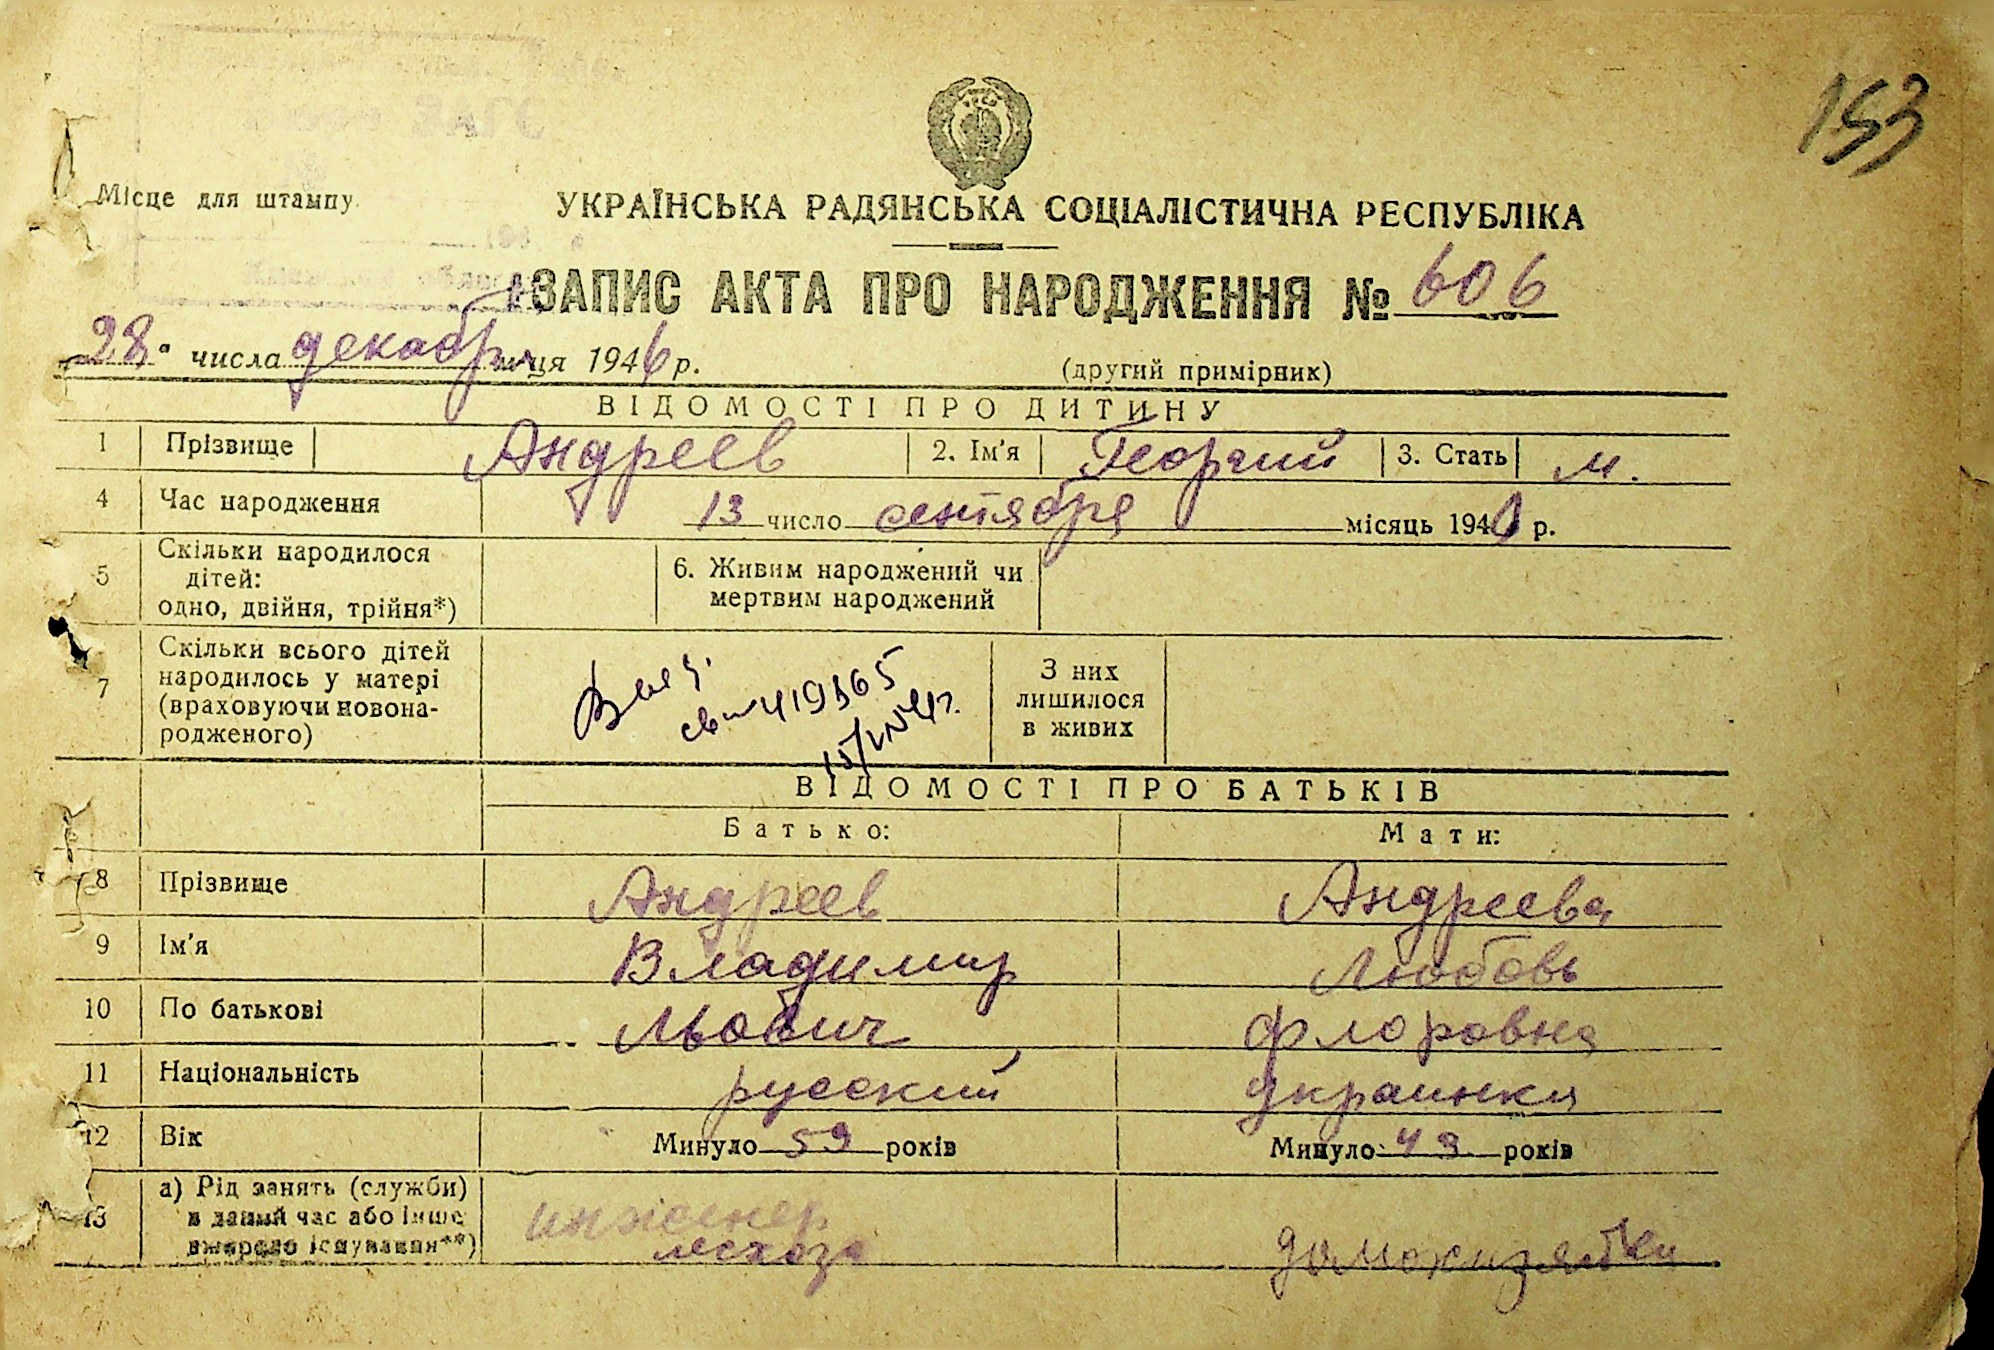 153
Місце для штампу
УКРАЇНСЬКА РАДЯНСЬКА СОЦІАЛІСТИЧНА РЕСПУБЛІКА
ЗАПИС АКТА ПРО НАРОДЖЕННЯ № 606
28 числа декабря місяця 1946 р.
(другий примірник)
ВІДОМОСТІ ПРО ДИТИНУ
1 Прізвище Андреев 2. Ім'я Георгий 3. Стать м.
4 Час народження 13 число сентября місяць 194 р.
5 Скільки народилося дітей: одно, двійня, трійня*) 6. Живим народжений чи мертвим народжений
7 Скільки всього дітей народилось у матері (враховуючи новонародженого) З них лишилося в живих
ВІДОМОСТІ ПРО БАТЬКІВ
Батько: Мати:
8 Прізвище Андреев Андреева
9 Ім'я Владимир Любовь
10 По батькові Львович Флоровна
11 Національність русский украинка
12 Вік Минуло 59 років Минуло 43 років
13 а) Рід занять (служби) в даний час або інше джерело існування**) инженер лесхоза домохизяйка